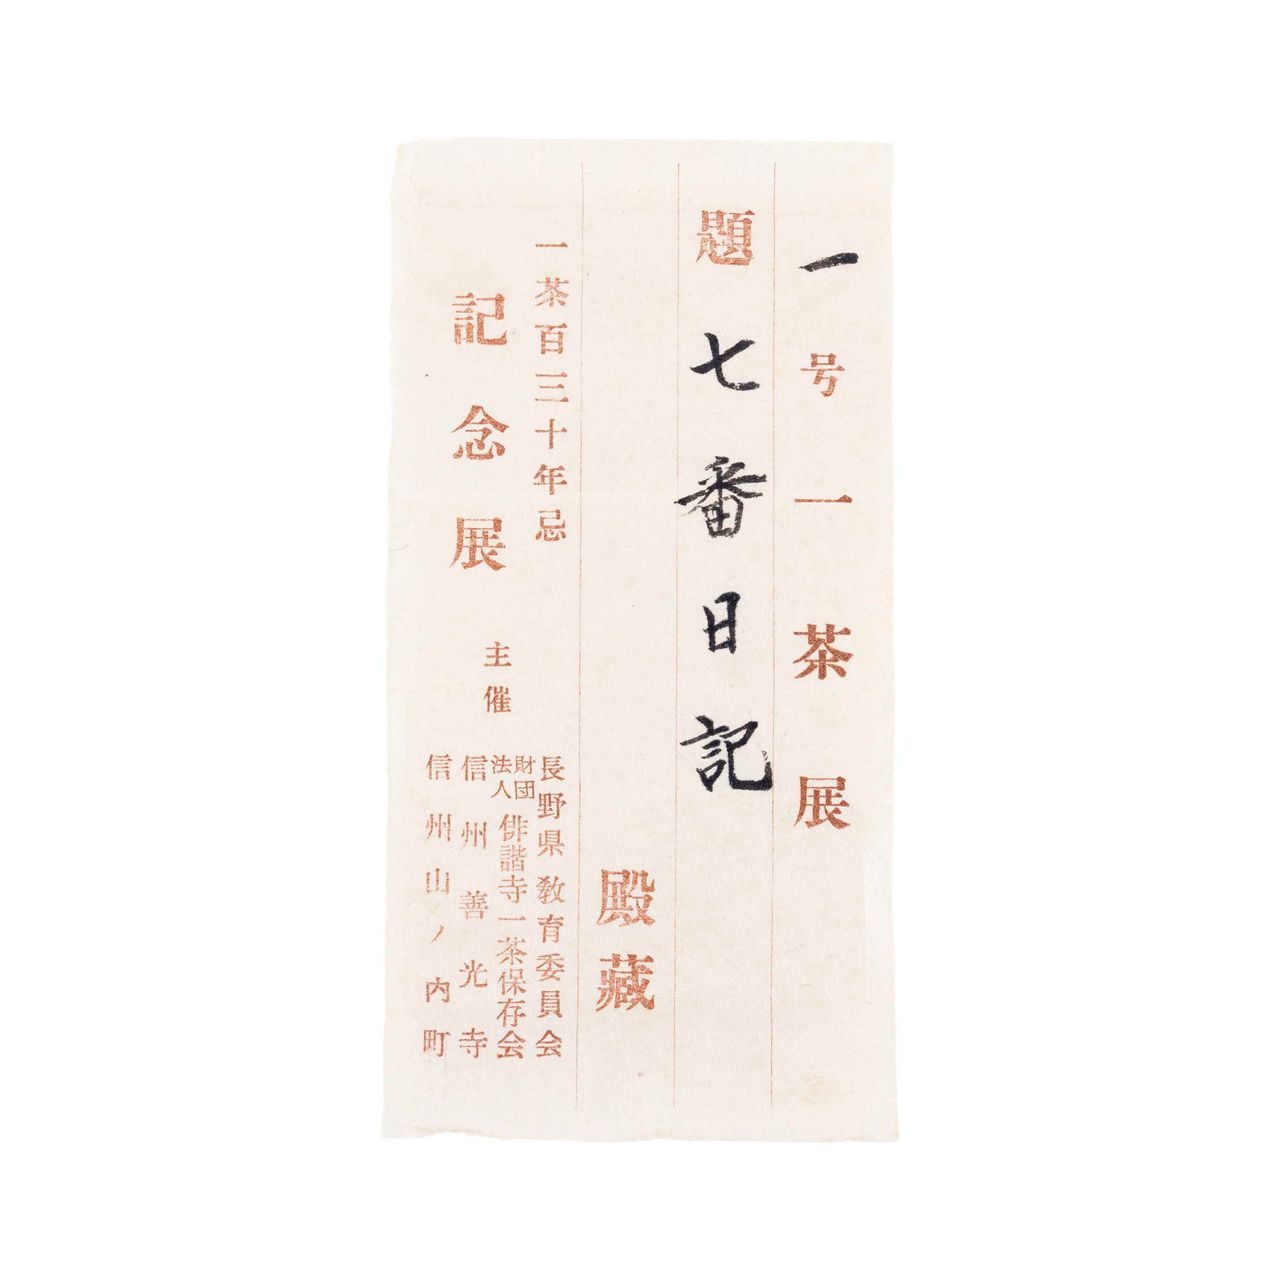 一号一茶展
題 七番日記
殿蔵
一茶百三十年忌
記念展
主催
長野県教育委員会
財団法人俳諧寺一茶保存会
信州善光寺
信州山ノ内町